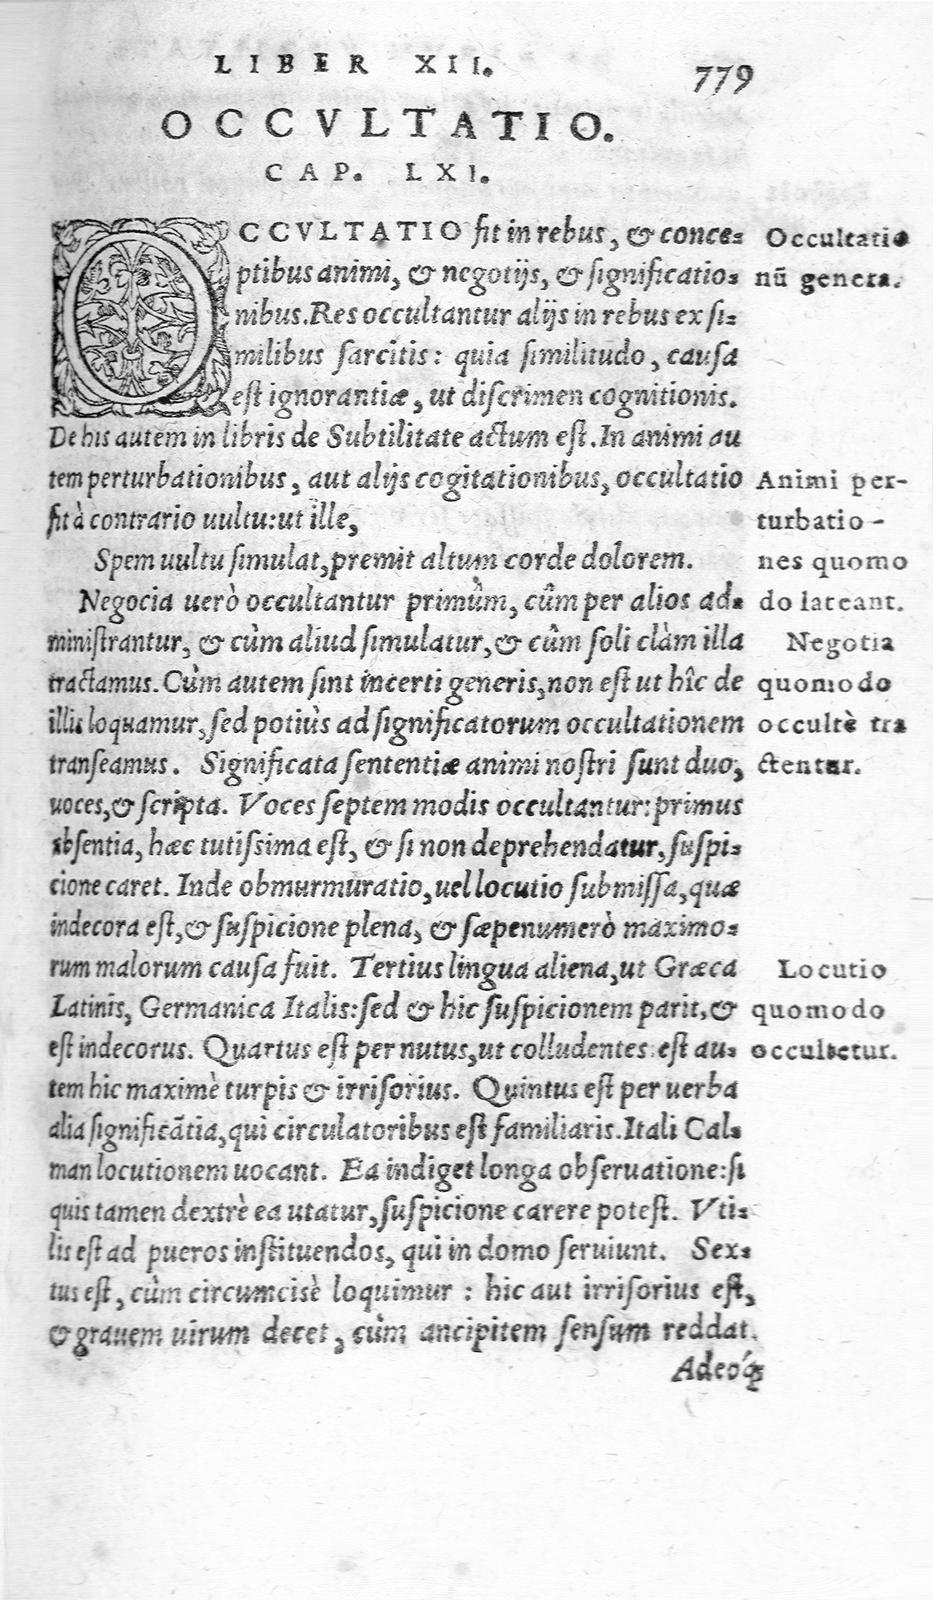 LIBER XII. 779
OCCVLTATIO.
CAP. LXI.
OCCVLTATIO fit in rebus, & conce-
ptibus animi, & negotijs, & significatio-
nibus. Res occultantur alijs in rebus ex si-
milibus sarcitis: quia similitudo, causa
est ignorantiæ, ut discrimen cognitionis.
De his autem in libris de Subtilitate actum est. In animi au
tem perturbationibus, aut alijs cogitationibus, occultatio
fit à contrario uultu: ut ille,
Spem uultu simulat, premit altum corde dolorem.
Negocia uerò occultantur primûm, cûm per alios ad-
ministrantur, & cùm aliud simulatur, & cûm soli clàm illa
tractamus. Cùm autem sint incerti generis, non est ut hîc de
illis loquamur, sed potiùs ad significatorum occultationem
transeamus. Significata sententiæ animi nostri sunt duo,
uoces, & scripta. Voces septem modis occultantur: primus
absentia, hæc tutissima est, & si non deprehendatur, suspi-
cione caret. Inde obmurmuratio, uel locutio submissa, quæ
indecora est, & suspicione plena, & sæpenumerò maximo-
rum malorum causa fuit. Tertius lingua aliena, ut Græca
Latinis, Germanica Italis: sed & hic suspicionem parit, &
est indecorus. Quartus est per nutus, ut colludentes: est au-
tem hic maximè turpis & irrisorius. Quintus est per uerba
alia significãtia, qui circulatoribus est familiaris. Itali Cal-
man locutionem uocant. Ea indiget longa obseruatione: si
quis tamen dextrè ea utatur, suspicione carere potest. Vti-
lis est ad pueros instituendos, qui in domo seruiunt. Sex-
tus est, cùm circumcisè loquimur : hic aut irrisorius est,
& grauem uirum decet, cùm ancipitem sensum reddat.
Adeóq́;
Occultatio
nũ genera.
Animi per-
turbatio-
nes quomo
do lateant.
Negotia
quomodo
occultè tra
ctentur.
Locutio
quomodo
occultetur.